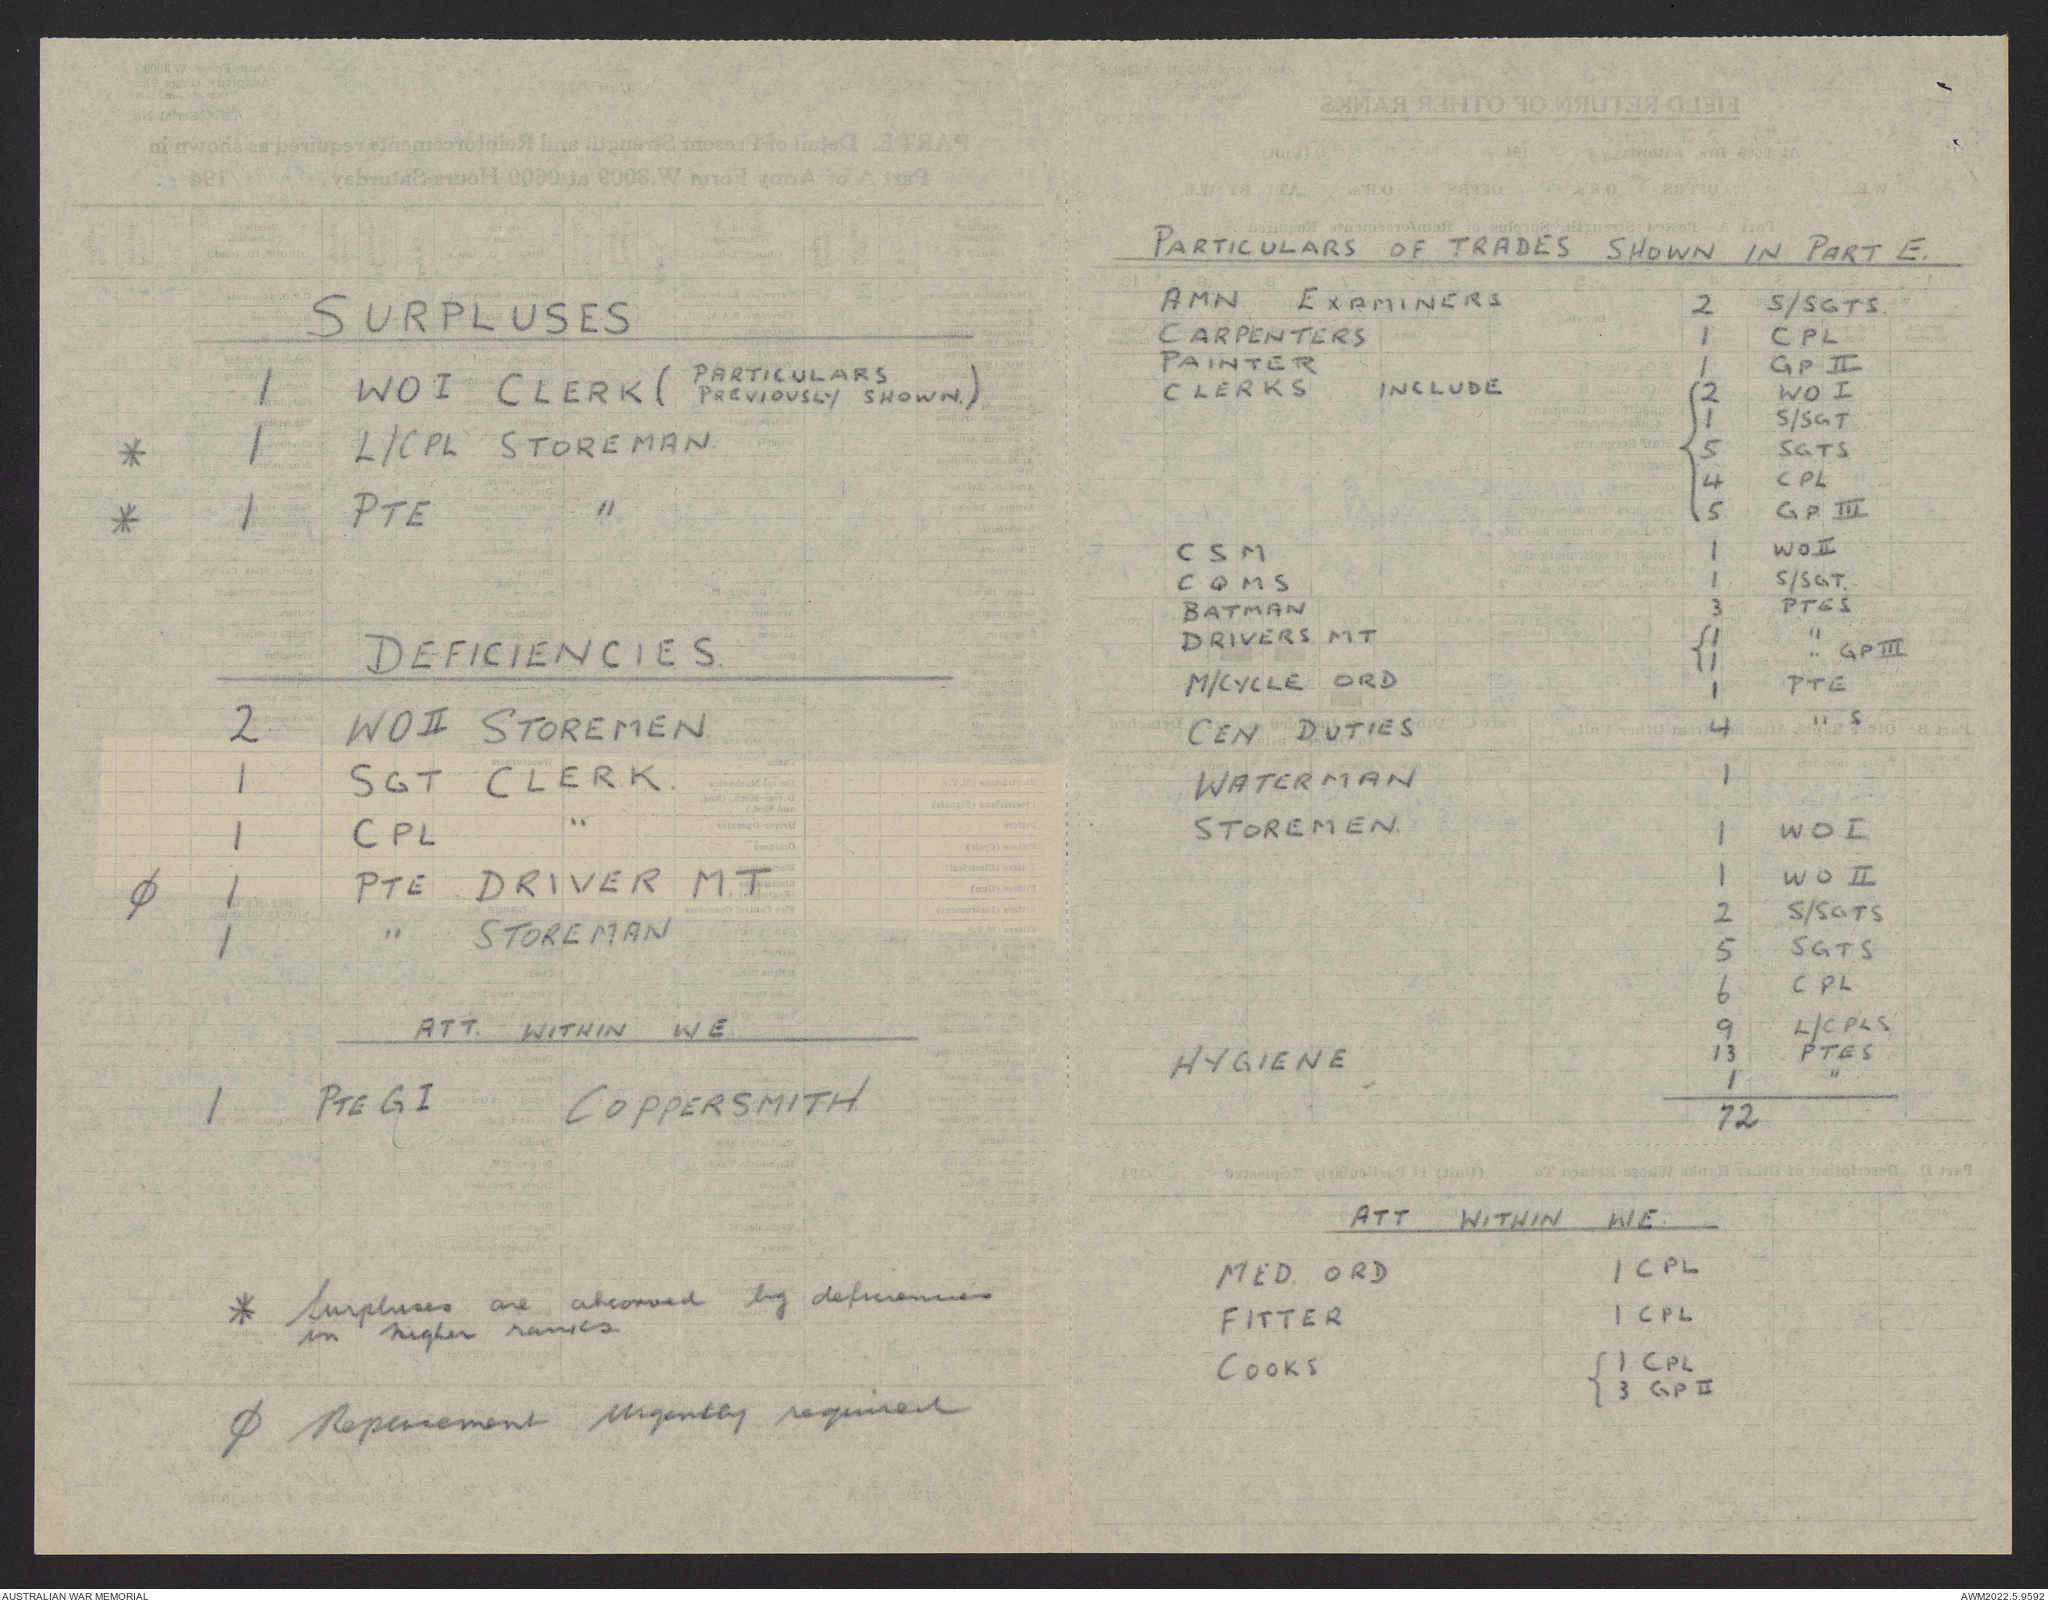 SURPLUSES
1 WO I CLERK (PARTICULARS PREVIOUSLY SHOWN.)
* 1 L/CPL STOREMAN.
* 1 PTE "
DEFICIENCIES.
2 WO II STOREMEN.
1 SGT CLERK.
1 CPL "
ø 1 PTE DRIVER M.T
1 " STOREMAN
ATT. WITHIN WE.
1 PTE G I COPPERSMITH
* Surpluses are absorbed by deficiencies
in higher ranks
ø Replacement urgently required
PARTICULARS OF TRADES SHOWN IN PART E.
AMN EXAMINERS 2 S/SGTS.
CARPENTERS 1 CPL
PAINTER 1 GP II
CLERKS INCLUDE 2 WO I
1 S/SGT
5 SGTS
4 CPL
5 GP III
CSM 1 WO II
CQMS 1 S/SGT.
BATMAN 3 PTES
DRIVERS MT 1 "
1 " GP III
M/CYCLE ORD 1 PTE
GEN DUTIES 4 " S
WATERMAN 1
STOREMEN. 1 WO I
1 WO II
2 S/SGTS
5 SGTS
6 CPL
9 L/CPLS
13 PTES
HYGIENE 1 "
72
ATT WITHIN WE.
MED. ORD 1 CPL
FITTER 1 CPL
COOKS 1 CPL
3 GP II
AUSTRALIAN WAR MEMORIAL
AWM2022.5.9592